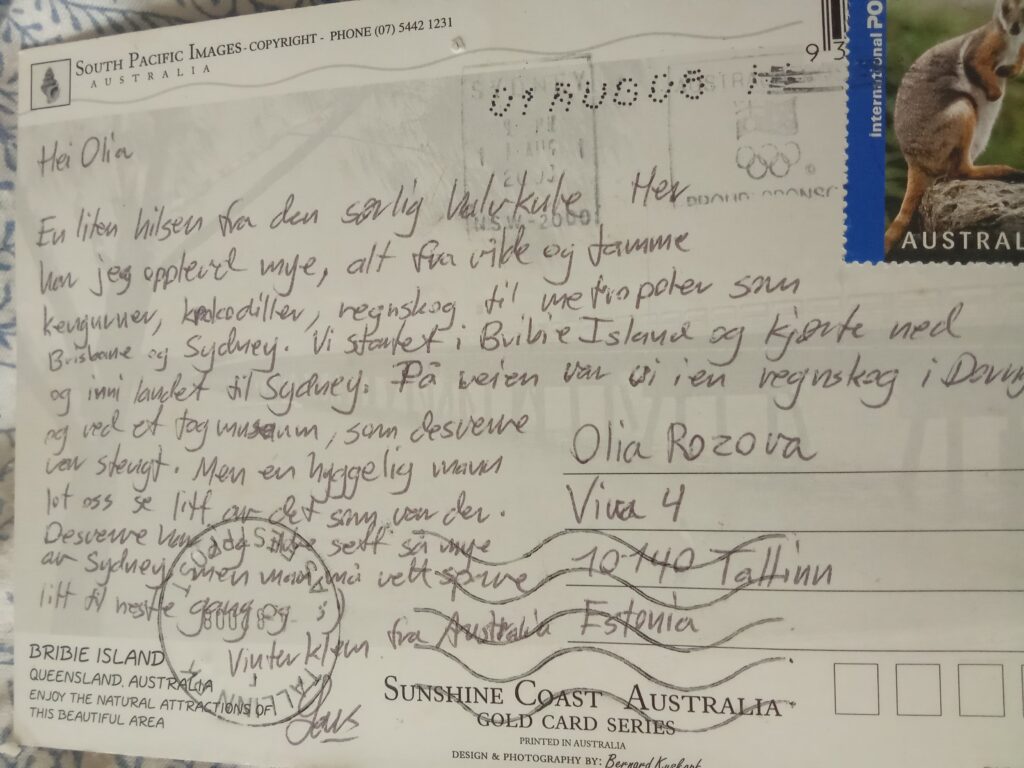 SOUTH PACIFIC IMAGES - COPYRIGHT - PHONE (07) 5442 1231
AUSTRALIA
93
International PO
AUSTRAL
SYDNEY
07 AUG 08
AUSTRAL
NSW-2000
PROUD SPONSO
Hei Olia
En liten hilsen fra den sørlig halvkule Her
har jeg opplevd mye, alt fra ville og tamme
kenguruer, krokodiller, regnskog til metropoler som
Brisbane og Sydney. Vi startet i Bribie Island og kjørte ned
og inni landet til Sydney. På veien var vi i en regnskog i
og ved et tog museum, som desverre
var stengt. Men en hyggelig mann
lot oss se litt av det som var der.
Desverre har jeg ikke sett så mye
av Sydney, men man må vett spare
litt til neste gang og
Vinter klem fra Australia
Olia Rozova
Viva 4
10140 Tallinn
Estonia
TALLINN
BRIBIE ISLAND
QUEENSLAND. AUSTRALIA
ENJOY THE NATURAL ATTRACTIONS OF
THIS BEAUTIFUL AREA
SUNSHINE COAST AUSTRALIA
GOLD CARD SERIES
PRINTED IN AUSTRALIA
DESIGN & PHOTOGRAPHY BY: Bernard